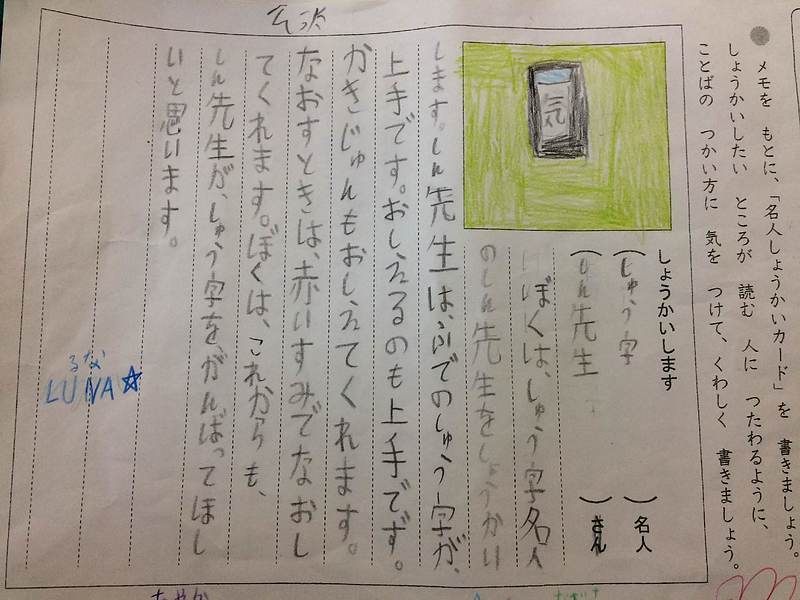 メモを もとに、「名人しょうかいカード」を 書きましょう。
しょうかいしたい ところが 読む 人に つたわるように、
ことばの つかい方に 気を つけて、くわしく 書きましょう。
しょうかいします
(しゅう字)名人
(しん先生)さん
気
ぼくは、しゅう字名人
のしん先生をしょうかい
します。しん先生は、ふでのしゅう字が、
上手です。おしえるのも上手です。
かきじゅんもおしえてくれます。
なおすときは、赤いすみでなおし
てくれます。ぼくは、これからも、
しん先生が、しゅう字を、がんばってほし
いと思います。
るな
LUNA☆